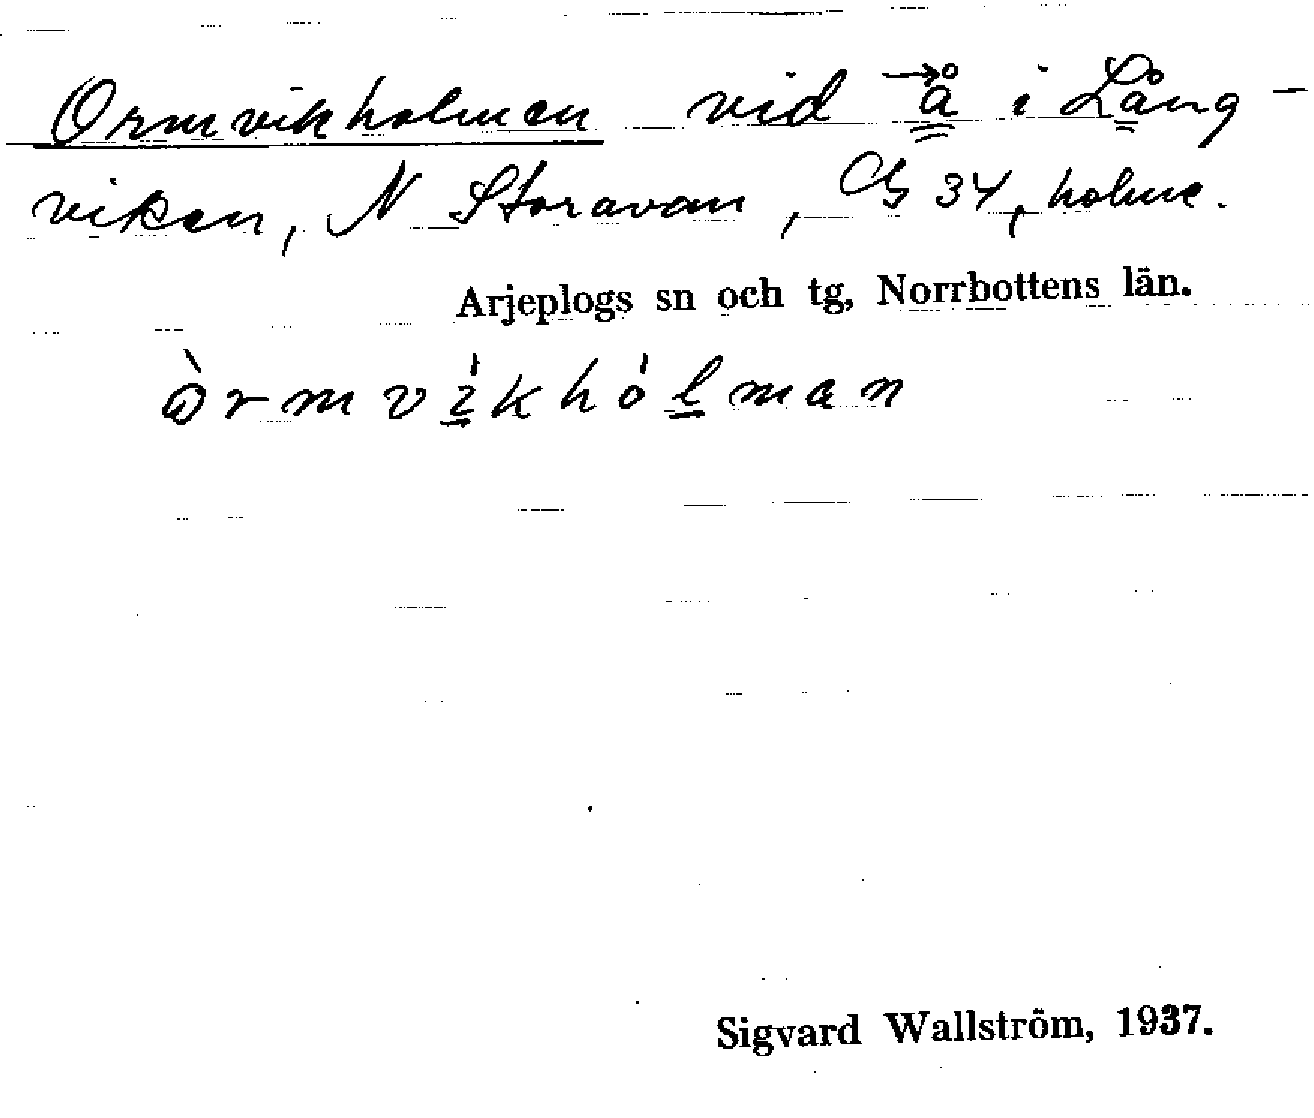 Ormvikholmen vid →å i Lång-
viken, N Storavan, 34, holme.
Arjeplogs sn och tg, Norrbottens län.
òrmvíkhólman
Sigvard Wallström, 1937.